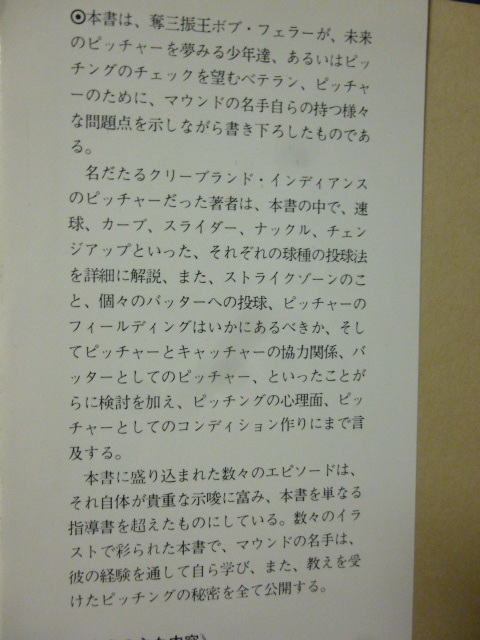 ◉本書は、奪三振王ボブ・フェラーが、未来
のピッチャーを夢みる少年達、あるいはピッ
チングのチェックを望むベテラン、ピッチャ
ーのために、マウンドの名手自らの持つ様々
な問題点を示しながら書き下ろしたものであ
る。
名だたるクリーブランド・インディアンス
のピッチャーだった著者は、本書の中で、速
球、カーブ、スライダー、ナックル、チェン
ジアップといった、それぞれの球種の投球法
を詳細に解説、また、ストライクゾーンのこ
と、個々のバッターへの投球、ピッチャーの
フィールディングはいかにあるべきか、そし
てピッチャーとキャッチャーの協力関係、バ
ッターとしてのピッチャー、といったことが
らに検討を加え、ピッチングの心理面、ピッ
チャーとしてのコンディション作りにまで言
及する。
本書に盛り込まれた数々のエピソードは、
それ自体が貴重な示唆に富み、本書を単なる
指導書を超えたものにしている。数々のイラ
ストで彩られた本書で、マウンドの名手は、
彼の経験を通して自ら学び、また、教えを受
けたピッチングの秘密を全て公開する。